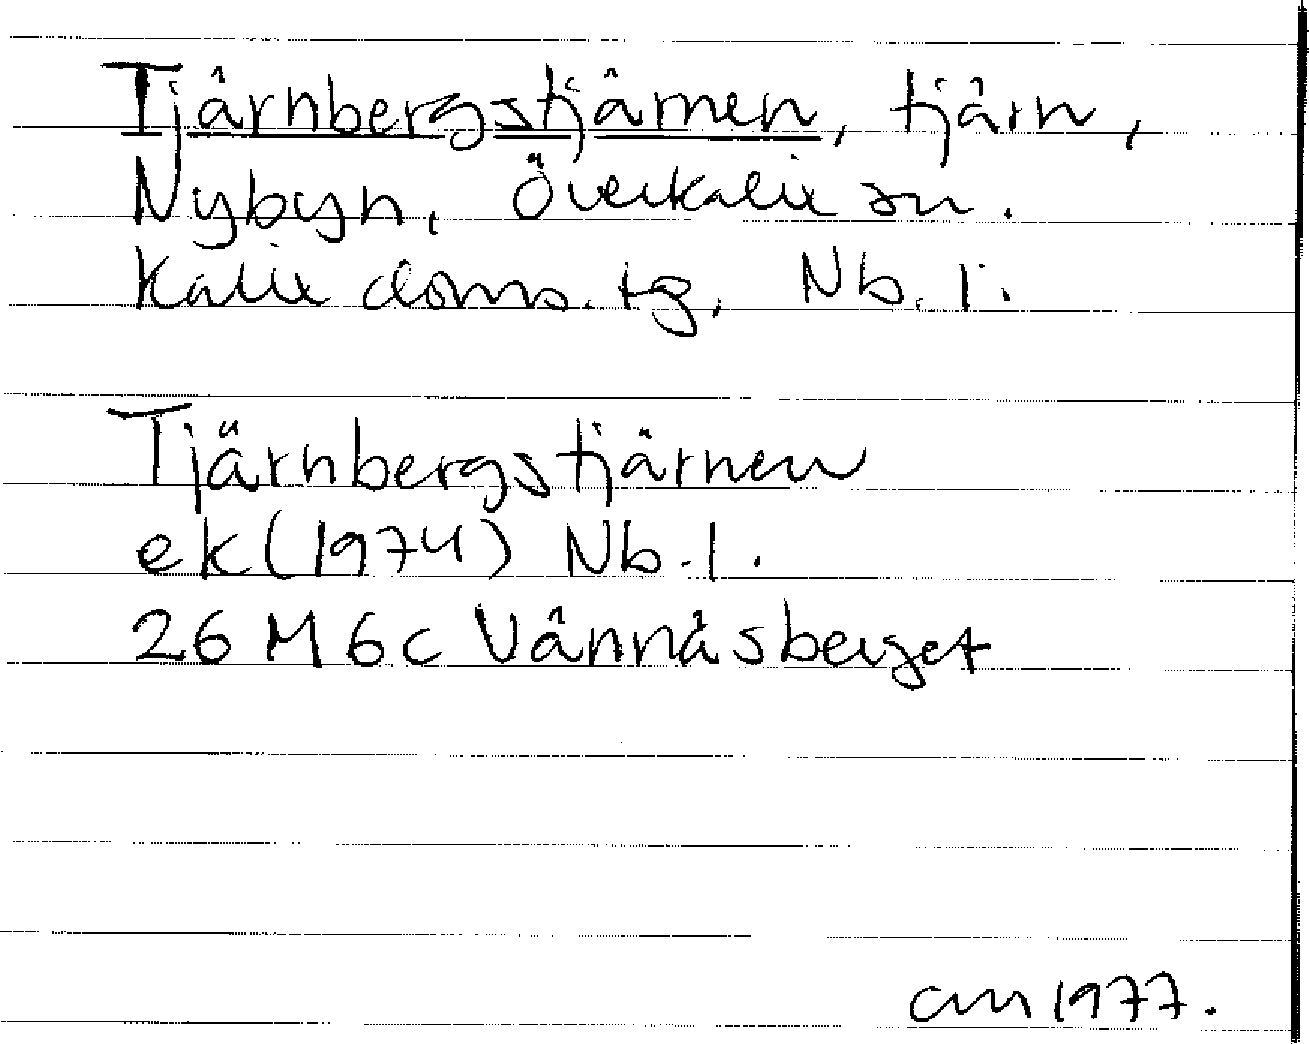 Tjärnbergstjärnen, tjärn,
Nybyn, Överkalix sn.
Kalix doms. tg, Nb. l.
Tjärnbergstjärnen
ek (1974) Nb. l.
26 M 6c Vännäsberget
am 1977.